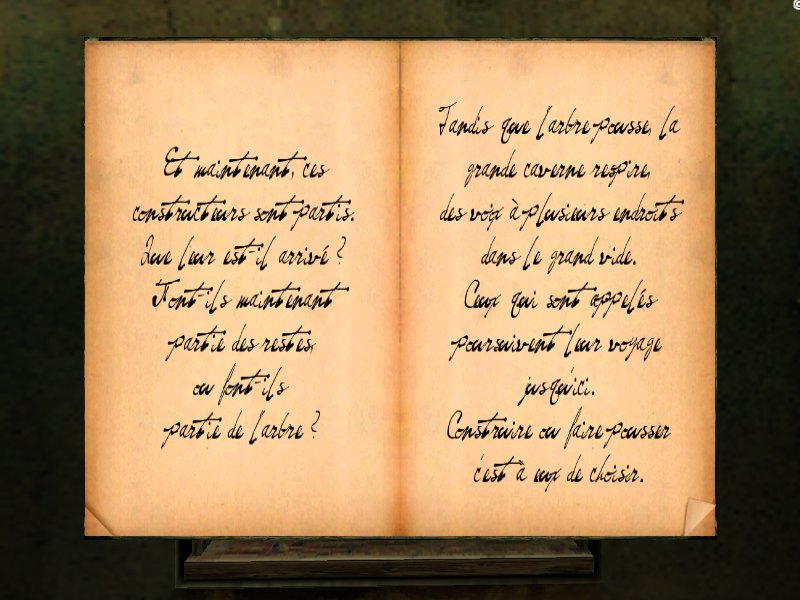 Et maintenant, ces
constructeurs sont partis.
Que leur est-il arrivé ?
Font-ils maintenant
partie des restes,
ou font-ils
partie de l'arbre ?
Tandis que l'arbre pousse, la
grande caverne respire,
des voix à plusieurs endroits
dans le grand vide.
Ceux qui sont appelés
poursuivent leur voyage
jusqu'ici.
Construire ou faire pousser
c'est à eux de choisir.